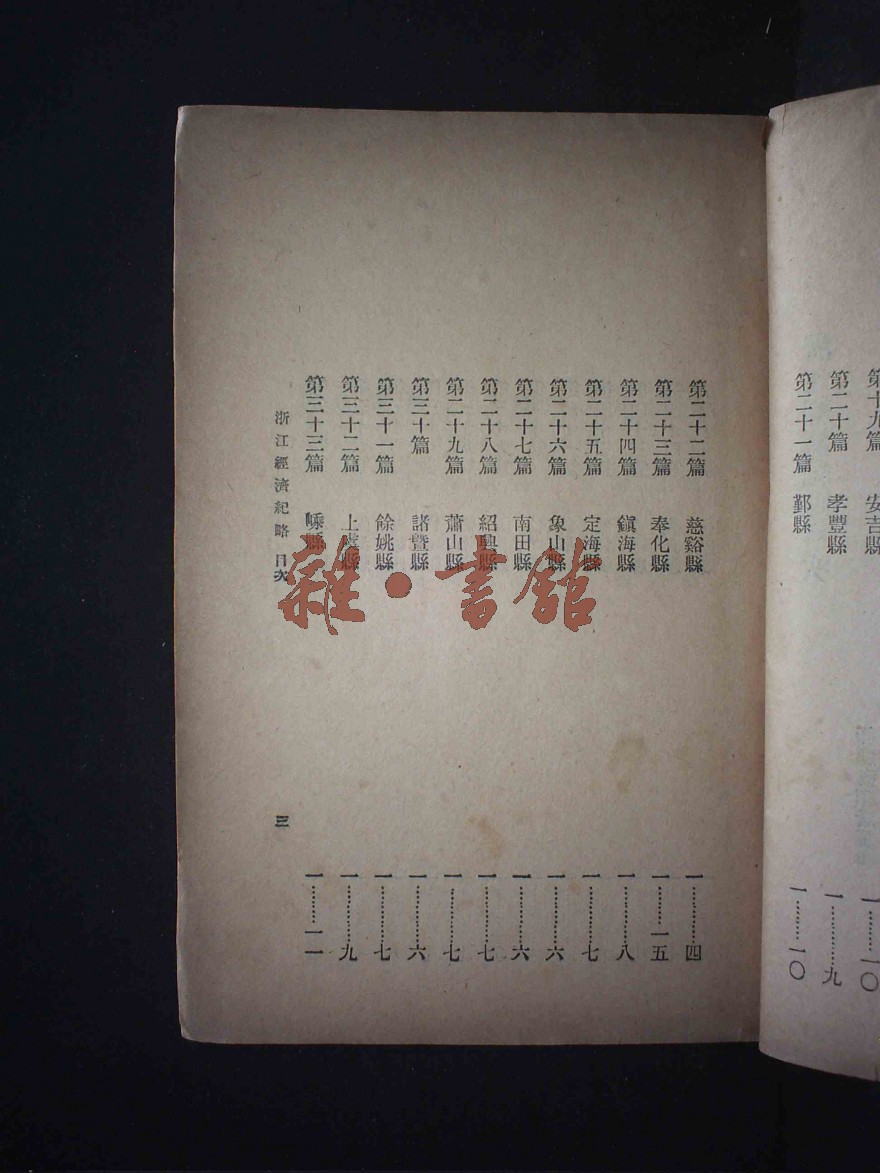 第十九篇 安吉縣 一………一〇
第二十篇 孝豐縣 一…………九
第二十一篇 鄞縣 一………一〇
第二十二篇 慈谿縣 一…………四
第二十三篇 奉化縣 一………一五
第二十四篇 鎭海縣 一…………八
第二十五篇 定海縣 一…………七
第二十六篇 象山縣 一…………六
第二十七篇 南田縣 一…………六
第二十八篇 紹興縣 一…………七
第二十九篇 蕭山縣 一…………七
第三十篇 諸暨縣 一…………六
第三十一篇 餘姚縣 一…………七
第三十二篇 上虞縣 一…………九
第三十三篇 嵊縣 一………一一
浙江經濟紀略 目次 三
雜·書館